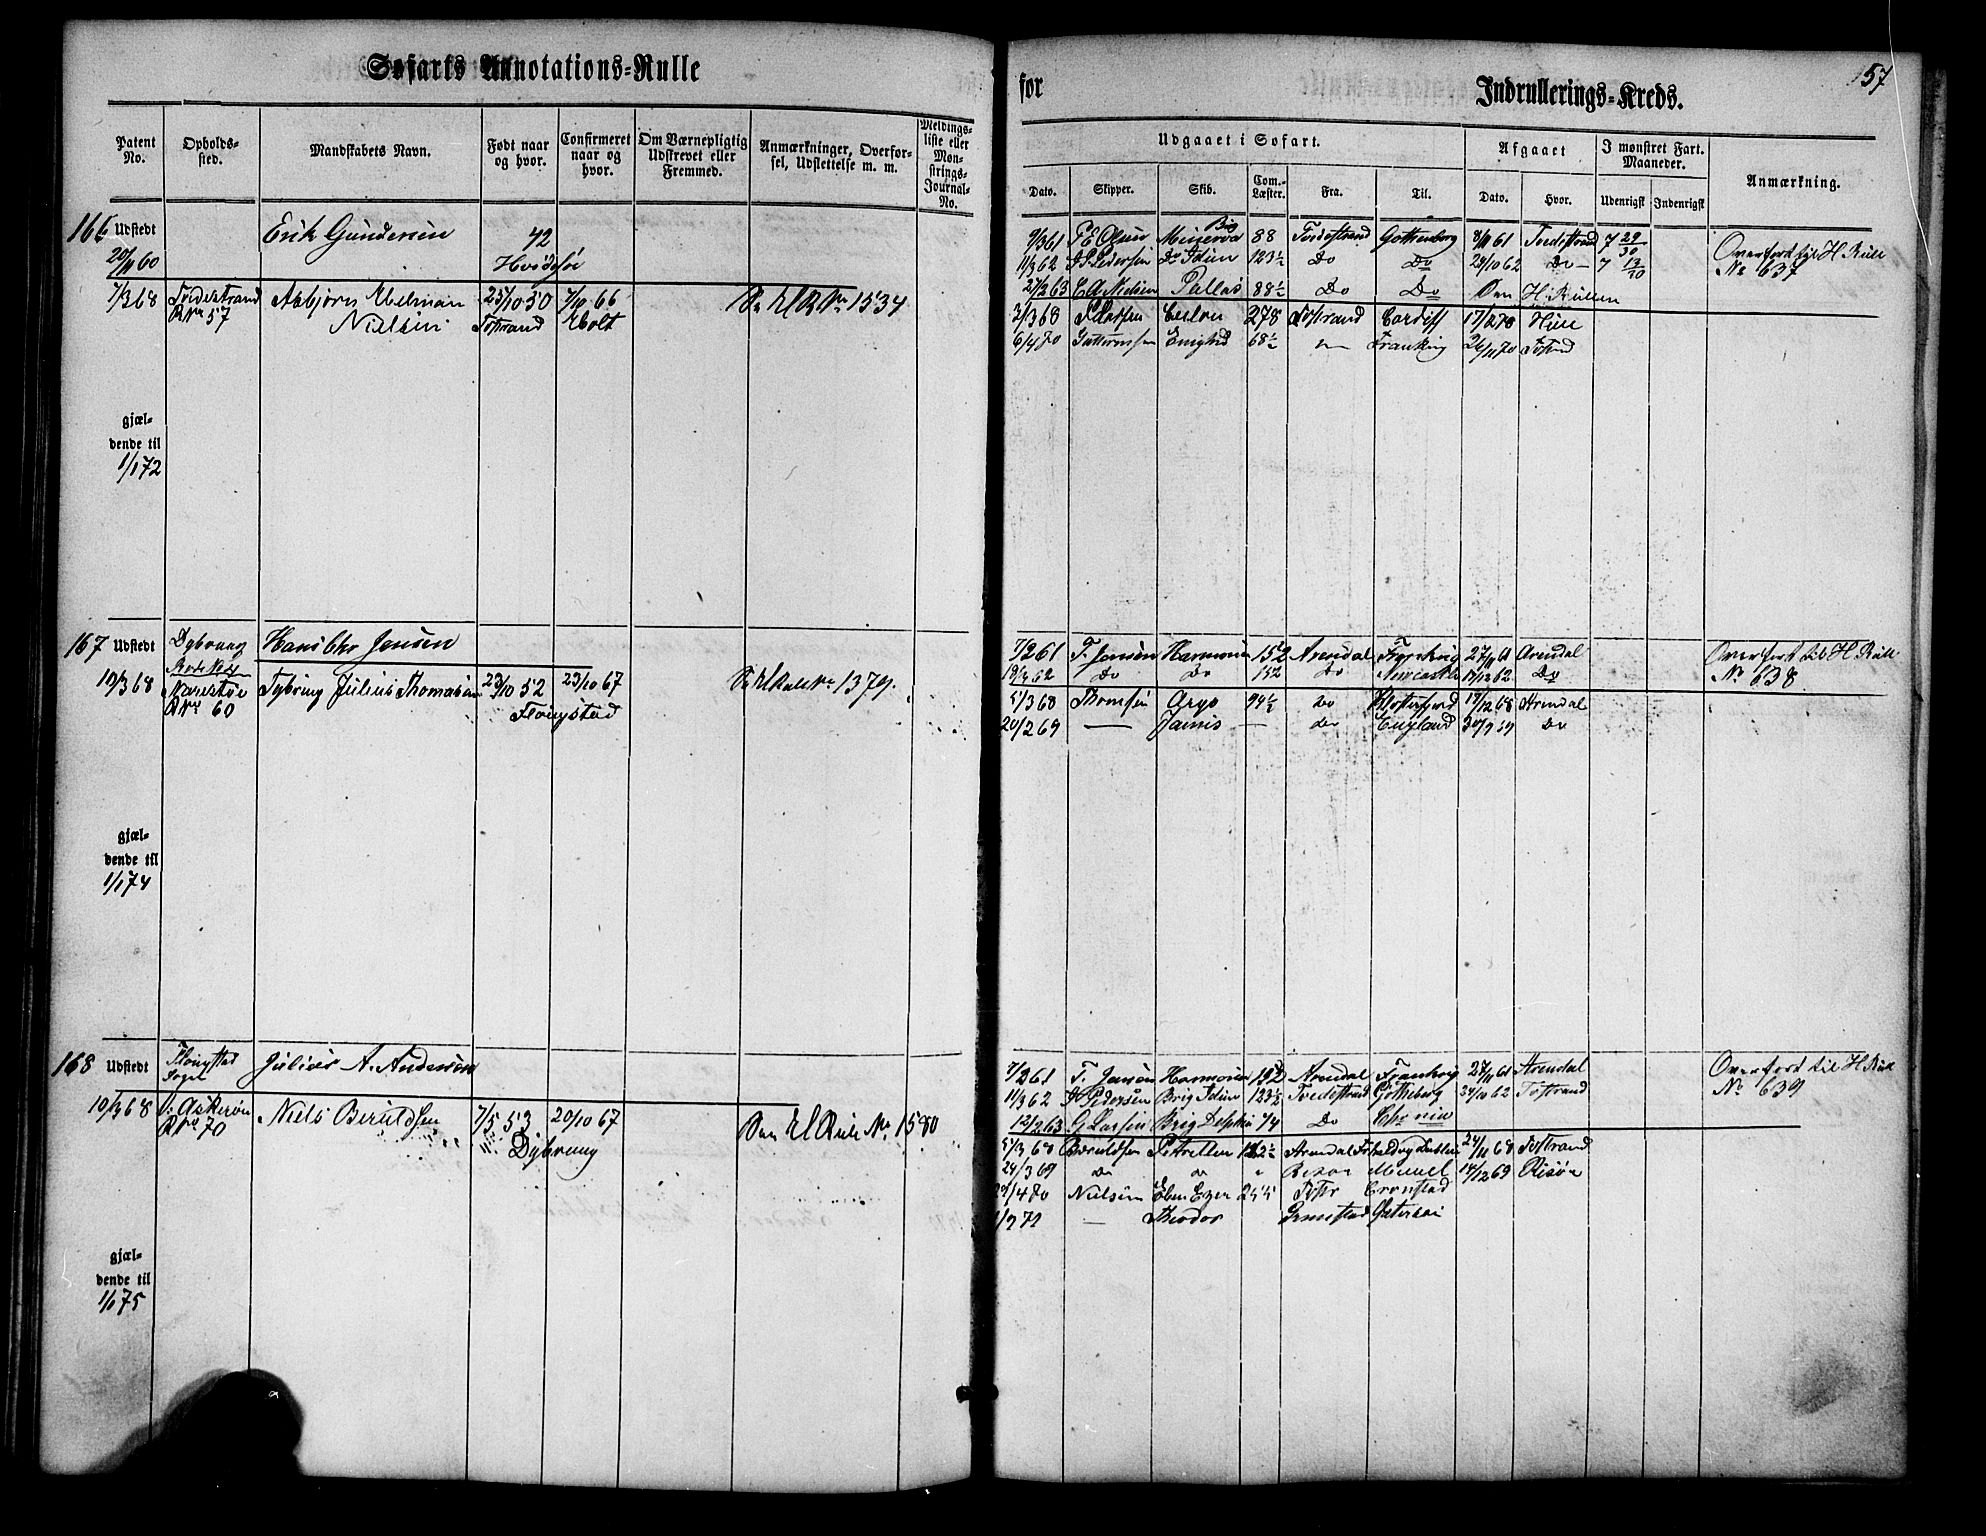 Søfarts Annotations-Rulle
for
Indrullerings-Kreds.
157
Patent No.
Opholds-sted.
Mandskabets Navn.
Født naar og hvor.
Confirmeret naar og hvor.
Om Værnepligtig Udskrevet eller Fremmed.
Anmærkninger, Overførsel, Udslettelse m. m.
Meldings-liste eller Møn-strings-Journal-No.
Udgaaet i Søfart.
Afgaaet
I mønstret Fart. Maaneder.
Anmærkning.
Dato.
Skipper.
Skib.
Com.-Læster.
Fra.
Til.
Dato.
Hvor.
Udenrigsk
Indenrigsk
166 Udstedt Erik Gundersen 42
20/11 60 Hvidesøe
7/3 68 Tvedestrand Asbjørn Abelman 23/10 50 7/10 66 Se H R No 1534
R No 57 Nielsen Tvstrand Holt
gjæl-
dende til
1/1 72
9/3 61 T E Olsen Brig Minerva 88 Tvedestrand Gothenborg 8/11 61 Tvedestrand 7 29/30 Overført til H Rulle
11/3 62 S. Pedersen Do Idun 123½ Do Do 24/10 62 Do 7 13/30 No 637
2/2 63 E A Nielsen Pallas 88½ Do Do H Rullen
3/3 68 Larsen 278 Tvstrand Cardiff Hull
6/4 70 68½ 26/11 70 Tvstrand
167 Udstedt Dybvaag Hans Chr Jensen
10/3 68 Narestøe Tybring Julius Thomassen 23/10 52 23/10 67 Se H Rulle No 1379.
R No 60 Flougstad
gjæl-
dende til
1/1 74
7/2 61 T. Jensen Harmonien 152 Arendal 27/11 61 Arendal Overført til H Rulle
19/3 62 Do Do 152 Do Newcastle 17/12 62 Do No 638
5/3 68 Thomsen Argo 99½ Do 17/12 68 Arendal
20/2 69 — — do England 30/9 69 Do
168 Udstedt Flougstad Julius A. Andersen
10/3 68 Askerøn Niels Beruldsen 7/5 53 20/10 67 Se H Rulle No 1580
R No 70 Dybvaag
gjæl-
dende til
1/1 75
7/2 61 T. Jensen Harmonien 152 Arendal 27/11 61 Arendal Overført til H Rulle
11/3 62 S Pedersen Brig Idun 123½ Tvedestrand Gotheborg 24/10 62 Tvstrand No 639
12/2 63 G Larsen Brig 74 Do
5/3 68 Beruldsen Arendal 24/11 68 Tvstrand
24/3 69 Do do " Memel 14/12 69 Risøn
4 70 Nielsen Eben Ezer Tvstr Cronstad
— Theodor